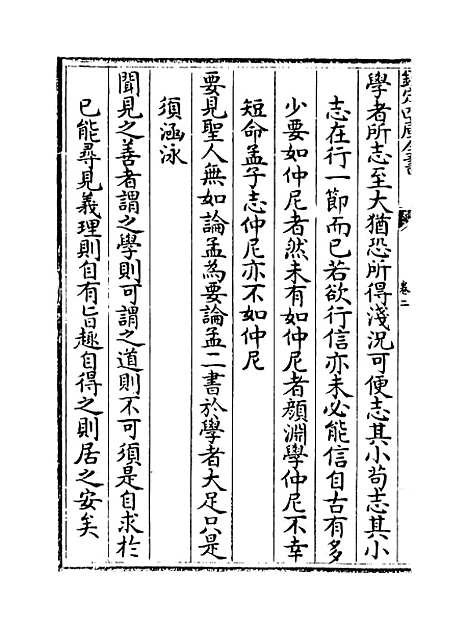 欽定四庫全書
卷二
學者所志至大猶恐所得淺況可便志其小苟志其小
志在行一節而已若欲行信亦未必能信自古有多
少要如仲尼者然未有如仲尼者顔淵學仲尼不幸
短命孟子志仲尼亦不如仲尼
要見聖人無如論孟為要論孟二書於學者大足只是
須涵泳
聞見之善者謂之學則可謂之道則不可須是自求於
已能尋見義理則自有旨趣自得之則居之安矣